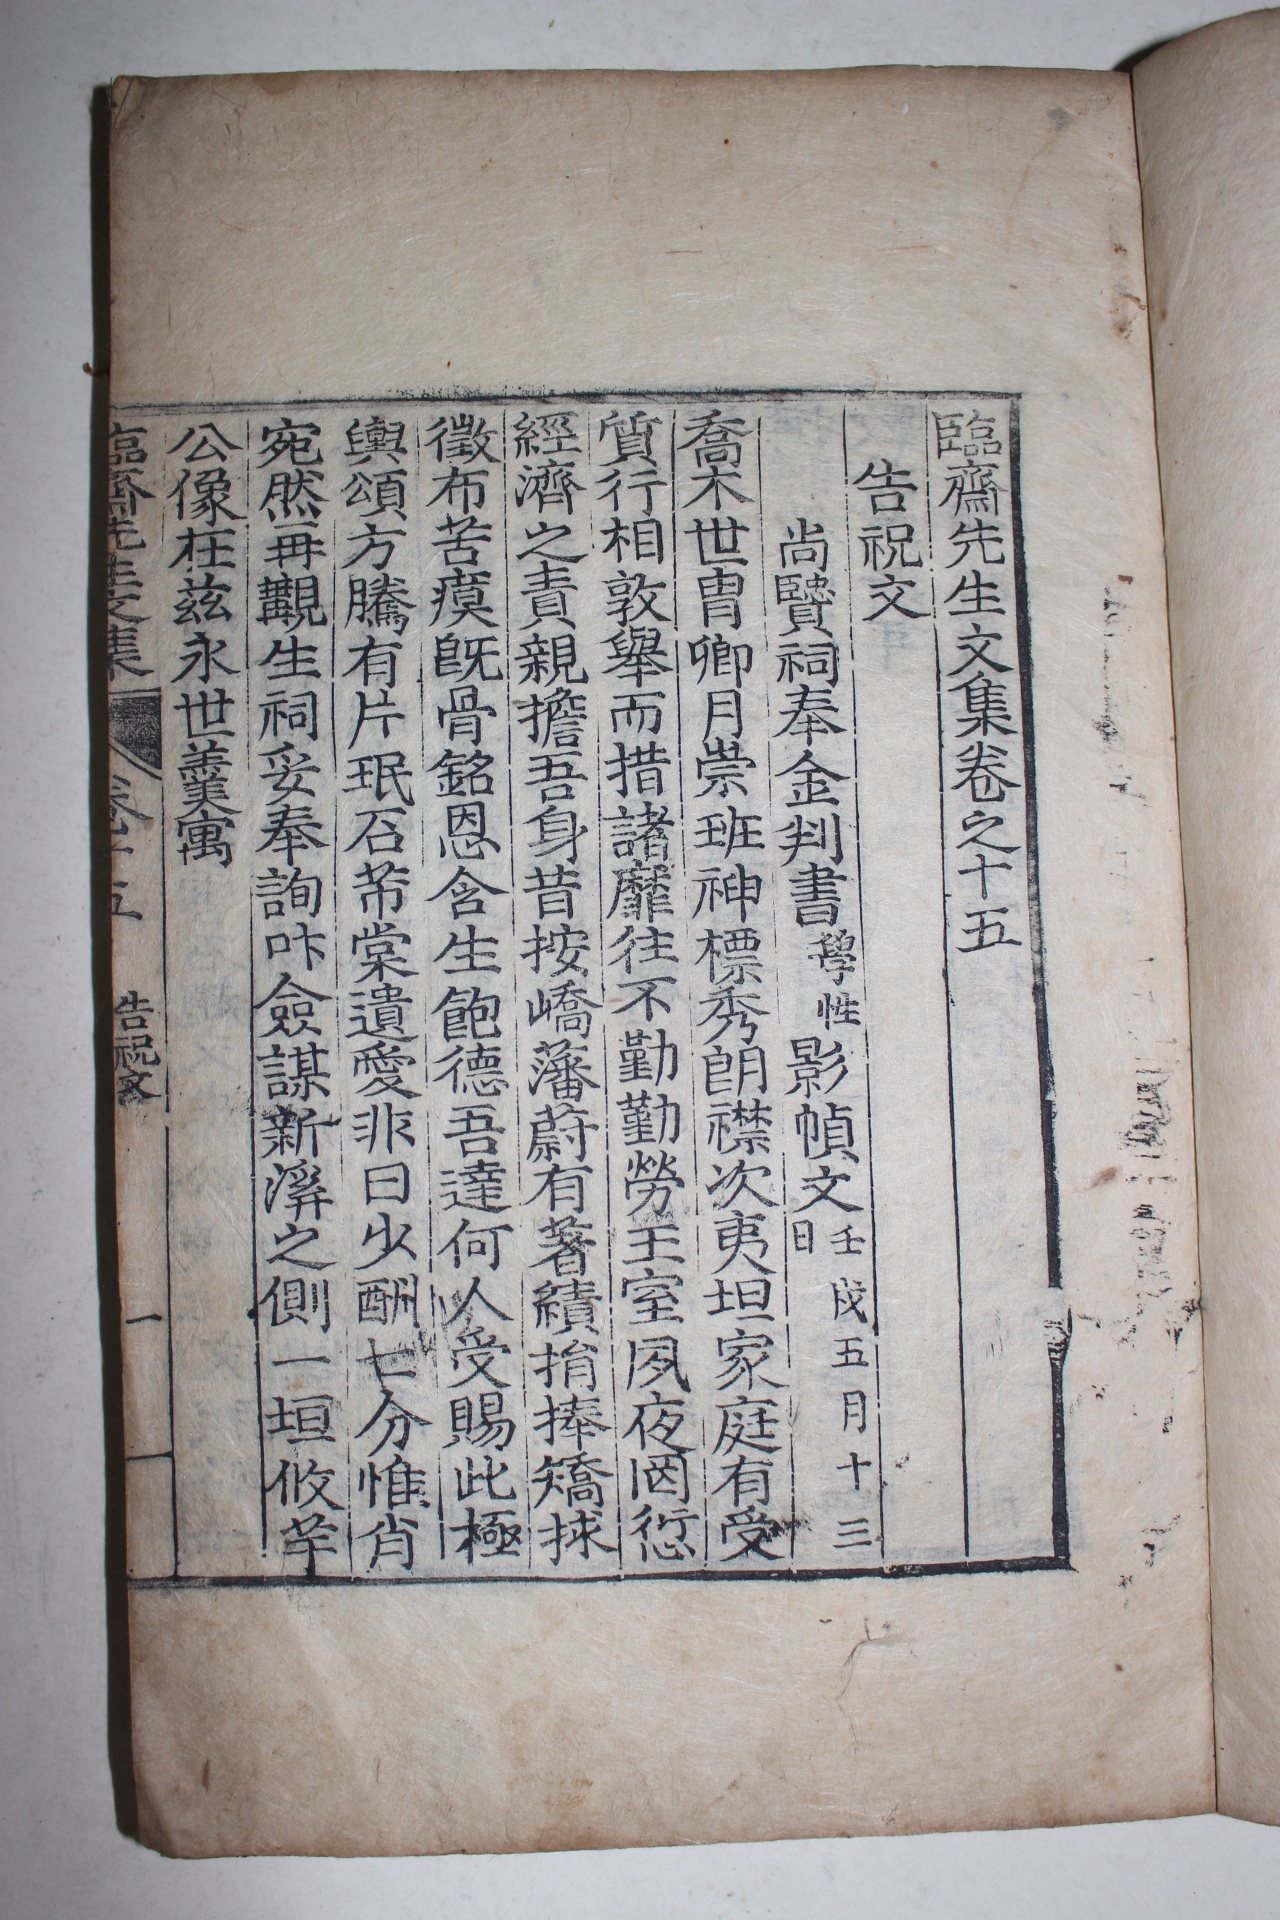 臨齋先生文集卷之十五
告祝文
尚賢祠奉金判書學性影幀文壬戌五月十三日
喬木世胄卿月崇班神標秀朗襟次夷坦家庭有受
質行相敦舉而措諸靡往不勤勤勞王室夙夜罔愆
經濟之責親擔吾身昔按嶠藩蔚有著績捐捧矯捄
徵布苦瘼旣骨銘恩含生飽德吾達何人受賜此極
輿頌方騰有片珉石芾棠遺愛非曰少酬七分惟肖
宛然再覿生祠妥奉詢咋僉謀新溪之側一垣攸芋
公像在玆永世羹寓
臨齋先生文集 卷之十五 告祝文 一